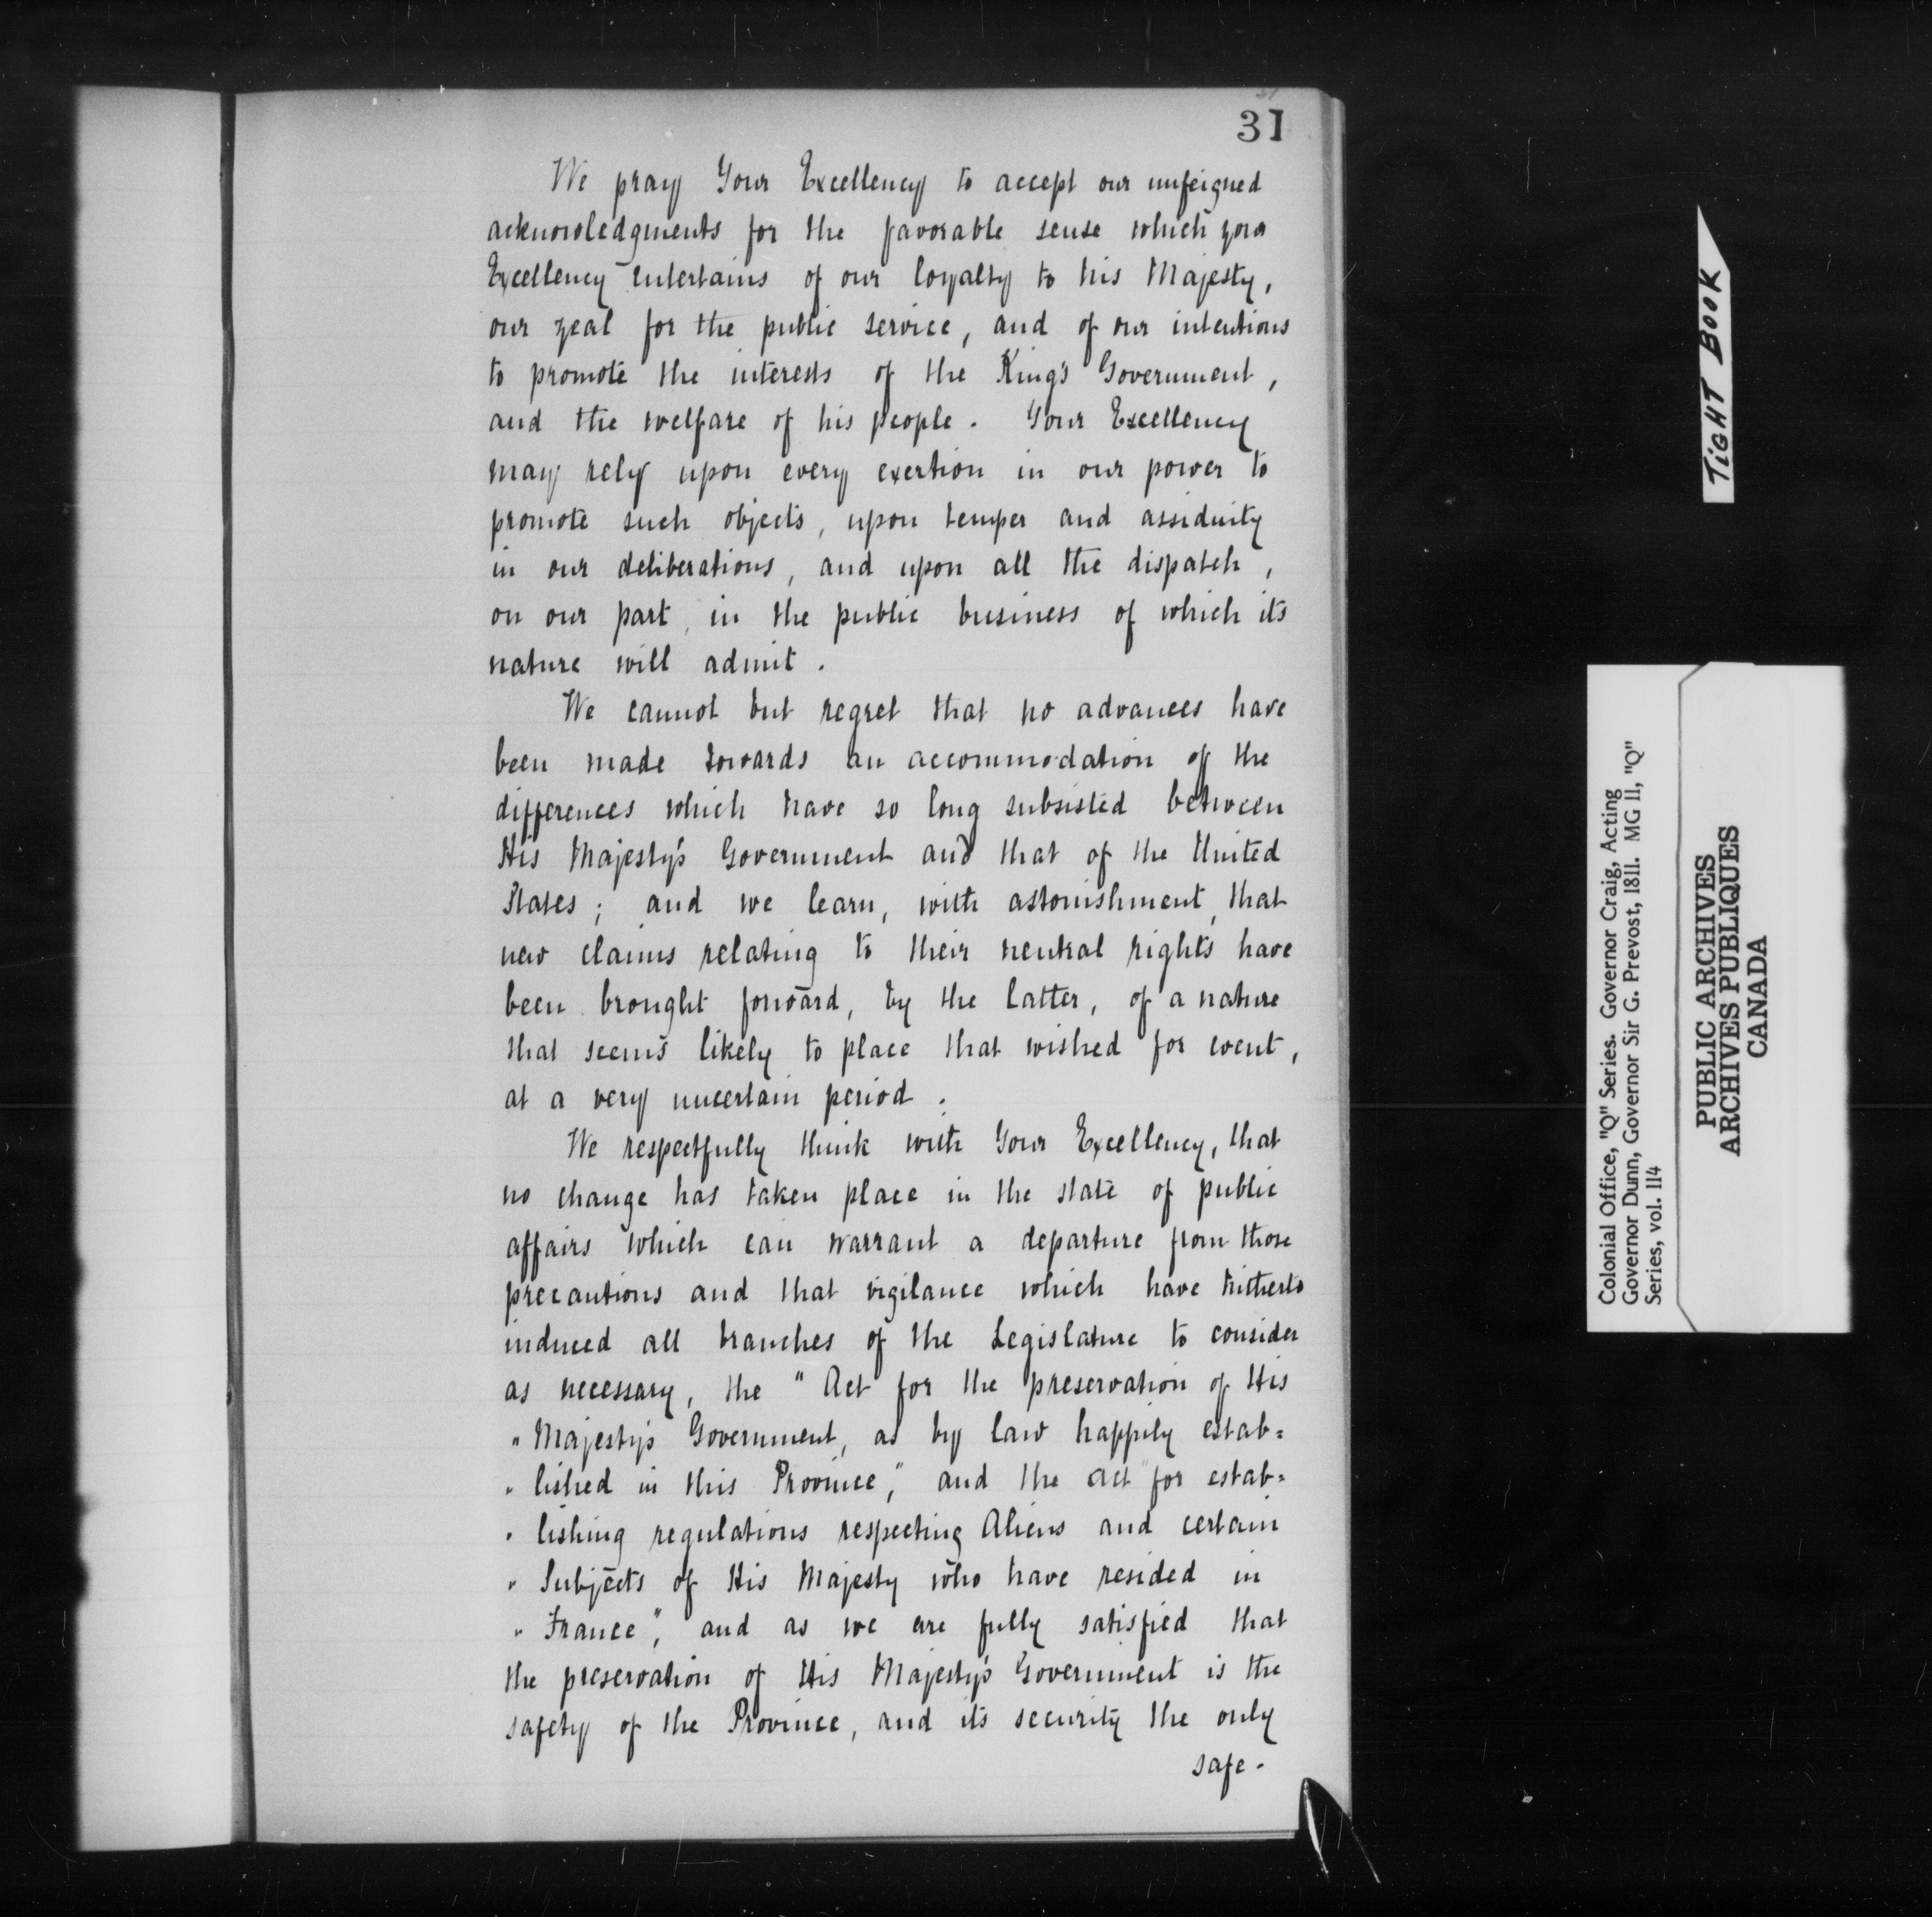 31
We pray Your Excellency to accept our unfeigned
acknowledgments for the favorable sense which your
Excellency entertains of our loyalty to his Majesty,
our zeal for the public service, and of our intentions
to promote the interests of the King's Government,
and the welfare of his people. Your Excellency
may rely upon every exertion in our power to
promote such objects, upon temper and assiduity
in our deliberations, and upon all the dispatch,
on our part, in the public business of which its
nature will admit.
We cannot but regret that no advances have
been made towards an accommodation of the
differences which have so long subsisted between
His Majesty's Government and that of the United
States; and we learn, with astonishment, that
new claims relating to their neutral rights have
been brought forward, by the latter, of a nature
that seems likely to place that wished for event,
at a very uncertain period.
We respectfully think with Your Excellency, that
no change has taken place in the state of public
affairs which can warrant a departure from those
precautions and that vigilance which have hitherto
induced all branches of the Legislature to consider
as necessary, the "Act for the preservation of His
" Majesty's Government, as by law happily estab=
" lished in this Province," and the Act "for estab=
" lishing regulations respecting Aliens and certain
" Subjects of His Majesty who have resided in
" France", and as we are fully satisfied that
the preservation of His Majesty's Government is the
safety of the Province, and its security the only
safe.
TIGHT BOOK
Colonial Office, "Q" Series. Governor Craig, Acting
Governor Dunn, Governor Sir G. Prevost, 1811. MG 11, "Q"
Series, vol. 114
PUBLIC ARCHIVES
ARCHIVES PUBLIQUES
CANADA